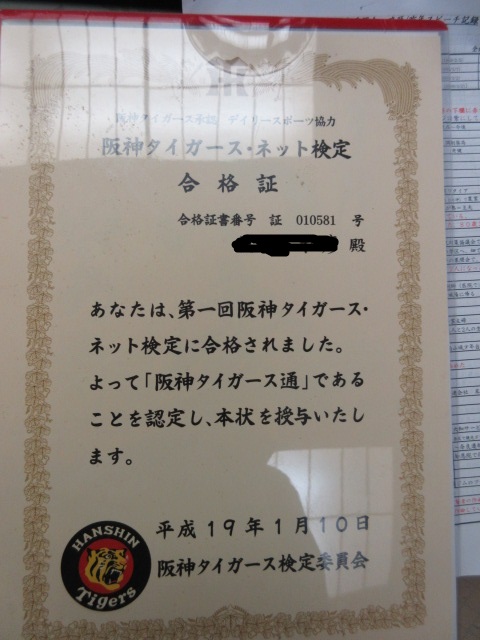 阪神タイガース承認 デイリースポーツ協力
阪神タイガース・ネット検定
合格証
合格証書番号 証 010581 号
殿
あなたは、第一回阪神タイガース・
ネット検定に合格されました。
よって「阪神タイガース通」である
ことを認定し、本状を授与いたし
ます。
平成19年1月10日
阪神タイガース検定委員会
HANSHIN
Tigers